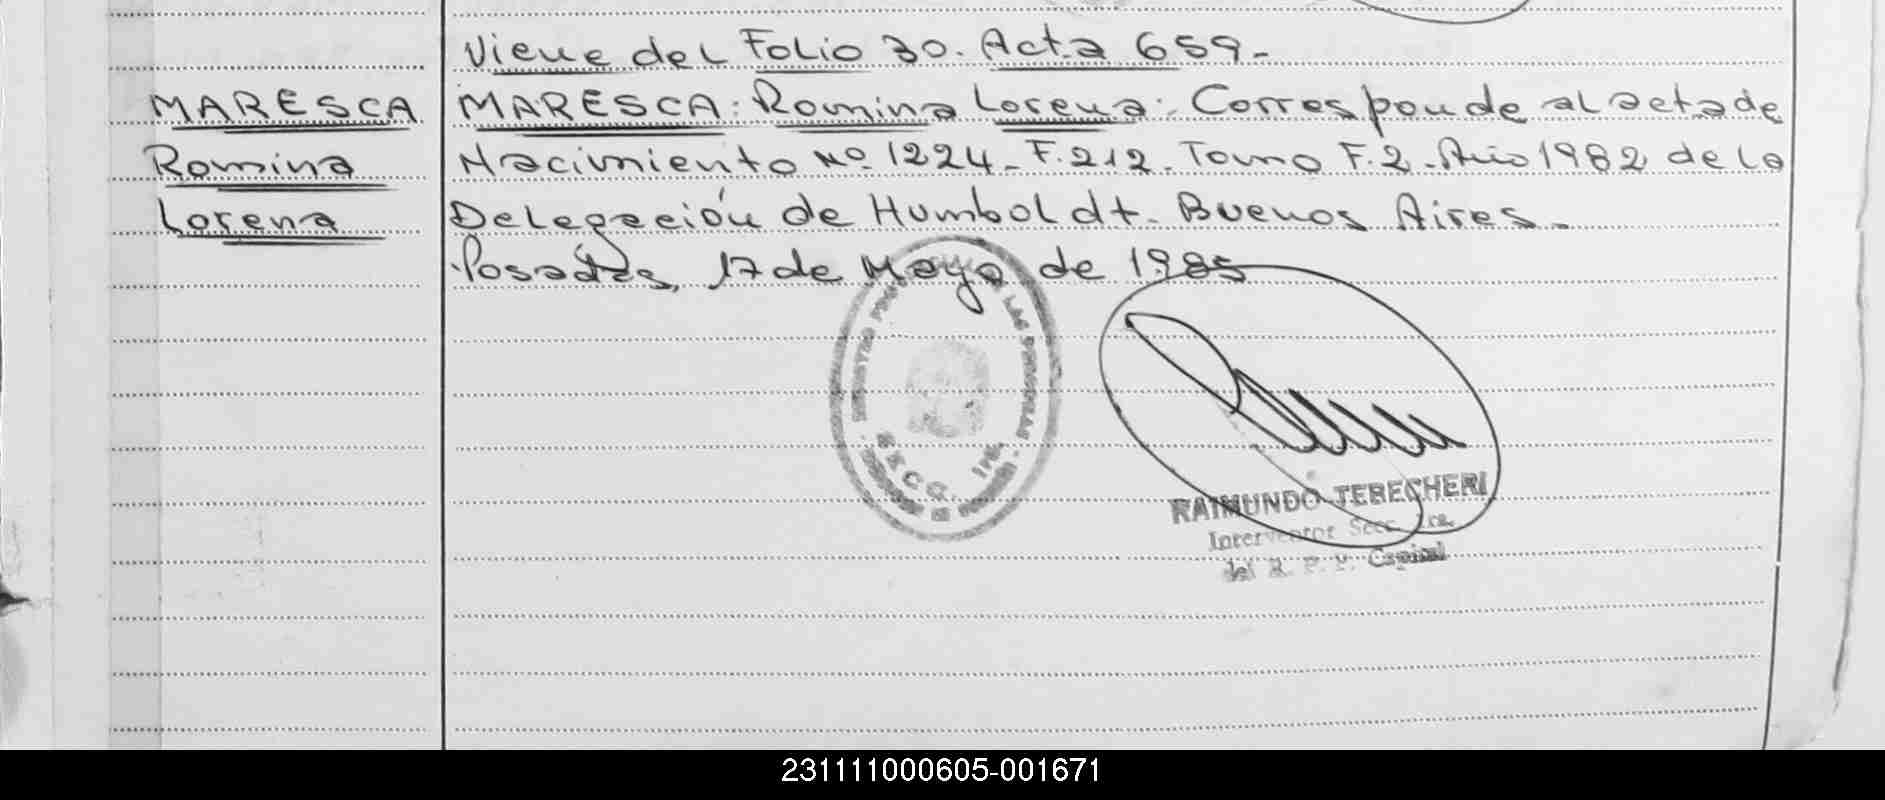 Viene del Folio 30. Acta 659-
MARESCA
Romina
Lorena
MARESCA: Romina Lorena: Corresponde al acta de
Nacimiento Nº 1224- F.212. Tomo F.2-Año 1982 de la
Delegación de Humboldt- Buenos Aires-
Posadas, 17 de Mayo de 1985
LAS PERSONAS
SECC. 1ra.
RAIMUNDO TERECHERI
Interventor Secc. 1ra.
del R. P. P. Capital
231111000605-001671